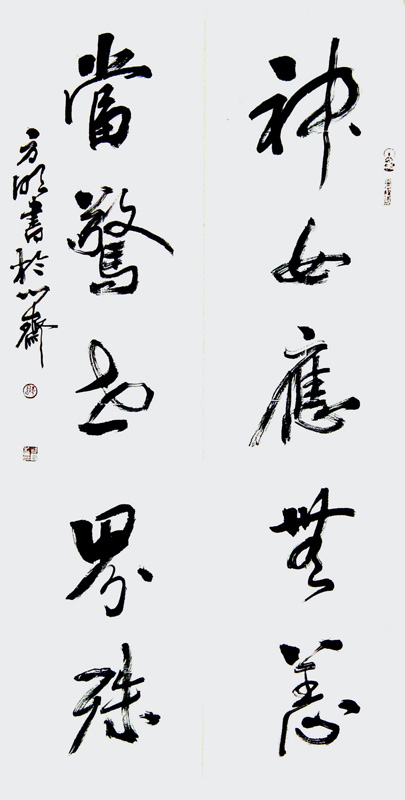 神女應無恙
當驚世界殊
方明書於心齋